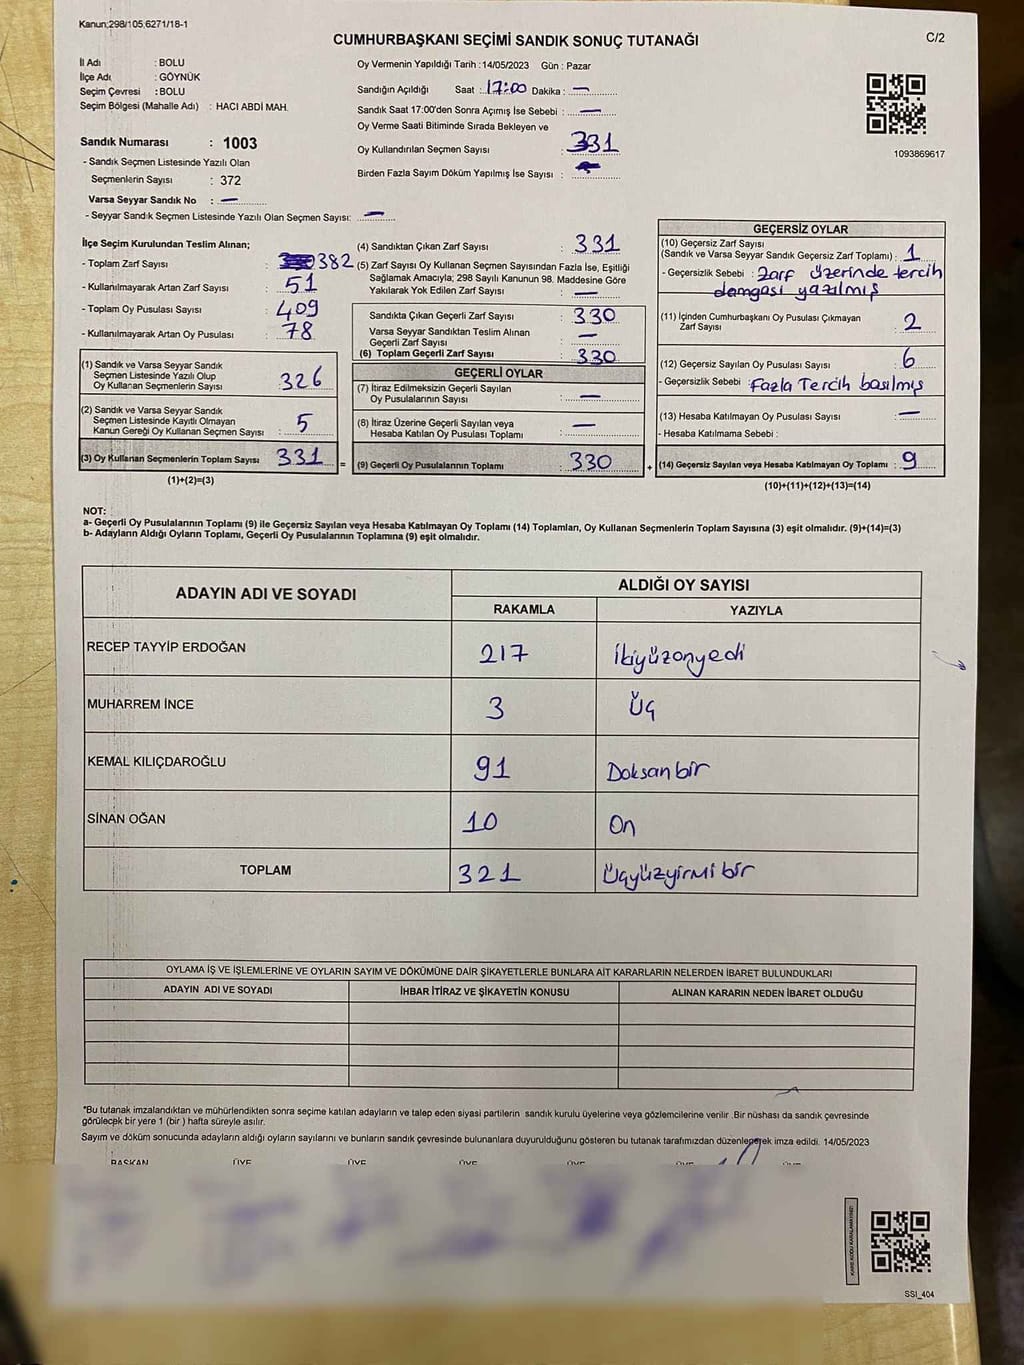 Kanun:298/105,6271/18-1
C/2
CUMHURBAŞKANI SEÇİMİ SANDIK SONUÇ TUTANAĞI
İl Adı : BOLU
İlçe Adı : GÖYNÜK
Seçim Çevresi : BOLU
Seçim Bölgesi (Mahalle Adı) : HACI ABDİ MAH.
Sandık Numarası : 1003
- Sandık Seçmen Listesinde Yazılı Olan
Seçmenlerin Sayısı : 372
Varsa Seyyar Sandık No : —
- Seyyar Sandık Seçmen Listesinde Yazılı Olan Seçmen Sayısı: —
Oy Vermenin Yapıldığı Tarih : 14/05/2023 Gün : Pazar
Sandığın Açıldığı Saat : 17:00 Dakika : —
Sandık Saat 17:00'den Sonra Açımış İse Sebebi : —
Oy Verme Saati Bitiminde Sırada Bekleyen ve
Oy Kullandırılan Seçmen Sayısı : 331
Birden Fazla Sayım Döküm Yapılmış İse Sayısı :
1093869617
İlçe Seçim Kurulundan Teslim Alınan;
- Toplam Zarf Sayısı : 382
- Kullanılmayarak Artan Zarf Sayısı : 51
- Toplam Oy Pusulası Sayısı : 409
- Kullanılmayarak Artan Oy Pusulası : 78
(1) Sandık ve Varsa Seyyar Sandık
Seçmen Listesinde Yazılı Olup
Oy Kullanan Seçmenlerin Sayısı : 326
(2) Sandık ve Varsa Seyyar Sandık
Seçmen Listesinde Kayıtlı Olmayan
Kanun Gereği Oy Kullanan Seçmen Sayısı : 5
(3) Oy Kullanan Seçmenlerin Toplam Sayısı 331
(1)+(2)=(3)
=
(4) Sandıktan Çıkan Zarf Sayısı : 331
(5) Zarf Sayısı Oy Kullanan Seçmen Sayısından Fazla İse, Eşitliği
Sağlamak Amacıyla; 298 Sayılı Kanunun 98. Maddesine Göre
Yakılarak Yok Edilen Zarf Sayısı : —
Sandıkta Çıkan Geçerli Zarf Sayısı : 330
Varsa Seyyar Sandıktan Teslim Alınan
Geçerli Zarf Sayısı : —
(6) Toplam Geçerli Zarf Sayısı : 330
GEÇERLİ OYLAR
(7) İtiraz Edilmeksizin Geçerli Sayılan
Oy Pusulalarının Sayısı : —
(8) İtiraz Üzerine Geçerli Sayılan veya
Hesaba Katılan Oy Pusulası Toplamı : —
(9) Geçerli Oy Pusulalarının Toplamı : 330
+
GEÇERSİZ OYLAR
(10) Geçersiz Zarf Sayısı
(Sandık ve Varsa Seyyar Sandık Geçersiz Zarf Toplamı) : 1
- Geçersizlik Sebebi : Zarf üzerinde tercih
damgası yazılmış
(11) İçinden Cumhurbaşkanı Oy Pusulası Çıkmayan
Zarf Sayısı : 2
(12) Geçersiz Sayılan Oy Pusulası Sayısı : 6
- Geçersizlik Sebebi : Fazla Tercih basılmış
(13) Hesaba Katılmayan Oy Pusulası Sayısı : —
- Hesaba Katılmama Sebebi :
(14) Geçersiz Sayılan veya Hesaba Katılmayan Oy Toplamı : 9
(10)+(11)+(12)+(13)=(14)
NOT:
a- Geçerli Oy Pusulalarının Toplamı (9) ile Geçersiz Sayılan veya Hesaba Katılmayan Oy Toplamı (14) Toplamları, Oy Kullanan Seçmenlerin Toplam Sayısına (3) eşit olmalıdır. (9)+(14)=(3)
b- Adayların Aldığı Oyların Toplamı, Geçerli Oy Pusulalarının Toplamına (9) eşit olmalıdır.
ADAYIN ADI VE SOYADI
ALDIĞI OY SAYISI
RAKAMLA YAZIYLA
RECEP TAYYİP ERDOĞAN 217 ikiyüzonyedi
MUHARREM İNCE 3 Üç
KEMAL KILIÇDAROĞLU 91 Doksan bir
SİNAN OĞAN 10 On
TOPLAM 321 Üçyüzyirmi bir
OYLAMA İŞ VE İŞLEMLERİNE VE OYLARIN SAYIM VE DÖKÜMÜNE DAİR ŞİKAYETLERLE BUNLARA AİT KARARLARIN NELERDEN İBARET BULUNDUKLARI
ADAYIN ADI VE SOYADI İHBAR İTİRAZ VE ŞİKAYETİN KONUSU ALINAN KARARIN NEDEN İBARET OLDUĞU
*Bu tutanak imzalandıktan ve mühürlendikten sonra seçime katılan adayların ve talep eden siyasi partilerin sandık kurulu üyelerine veya gözlemcilerine verilir .Bir nüshası da sandık çevresinde
görülecek bir yere 1 (bir ) hafta süreyle asılır.
Sayım ve döküm sonucunda adayların aldığı oyların sayılarını ve bunların sandık çevresinde bulunanlara duyurulduğunu gösteren bu tutanak tarafımızdan düzenlenerek imza edildi. 14/05/2023
BAŞKAN ÜYE ÜYE ÜYE ÜYE ÜYE ÜYE
KARE KODU KARALAMAYINIZ!
SSI_404